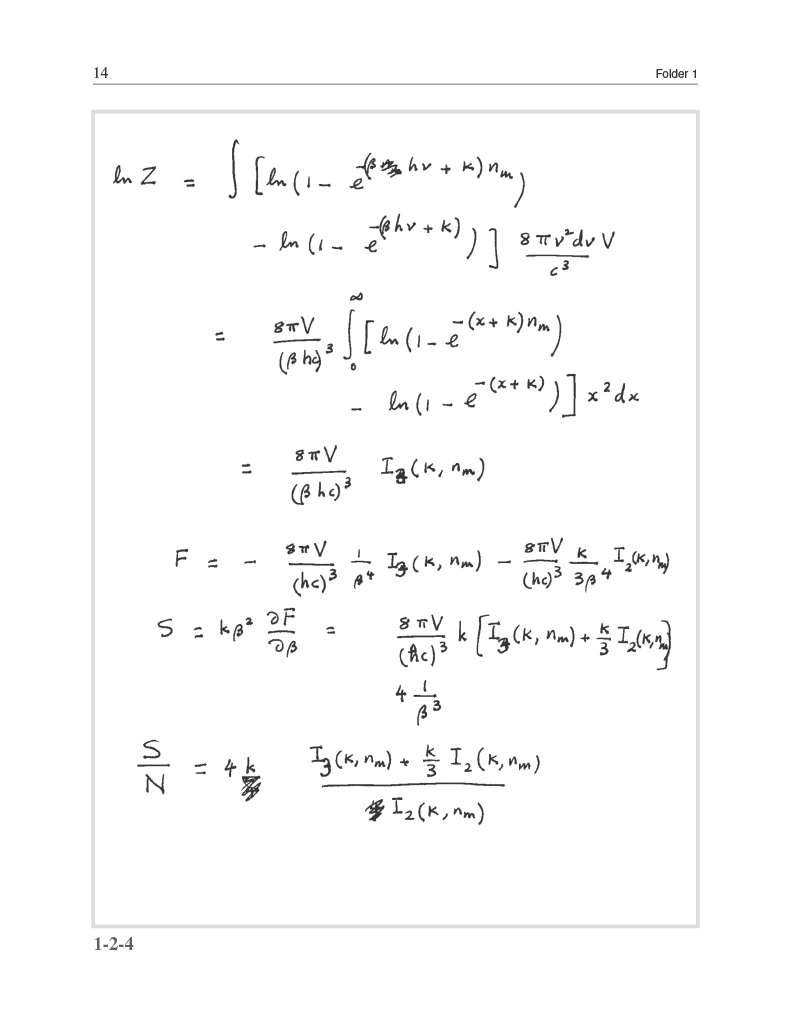 14 Folder 1
ln Z = ∫ [ ln (1 - e^{-(β hν + κ) n_m})
- ln (1 - e^{-(βhν + κ)}) ] 8πν²dν V / c³
= 8πV / (βhc)³ ∫_0^∞ [ ln (1 - e^{-(x + κ) n_m})
- ln (1 - e^{-(x + κ)}) ] x² dx
= 8πV / (βhc)³ I_3 (κ, n_m)
F = - 8πV / (hc)³ 1/β⁴ I_3 (κ, n_m) - 8πV / (hc)³ κ / 3β⁴ I_2 (κ, n_m)
S = kβ² ∂F/∂β = 8πV / (hc)³ k [ I_3 (κ, n_m) + κ/3 I_2 (κ, n_m) ]
4 1/β³
S/N = 4 k I_3 (κ, n_m) + κ/3 I_2 (κ, n_m) / I_2 (κ, n_m)
1-2-4